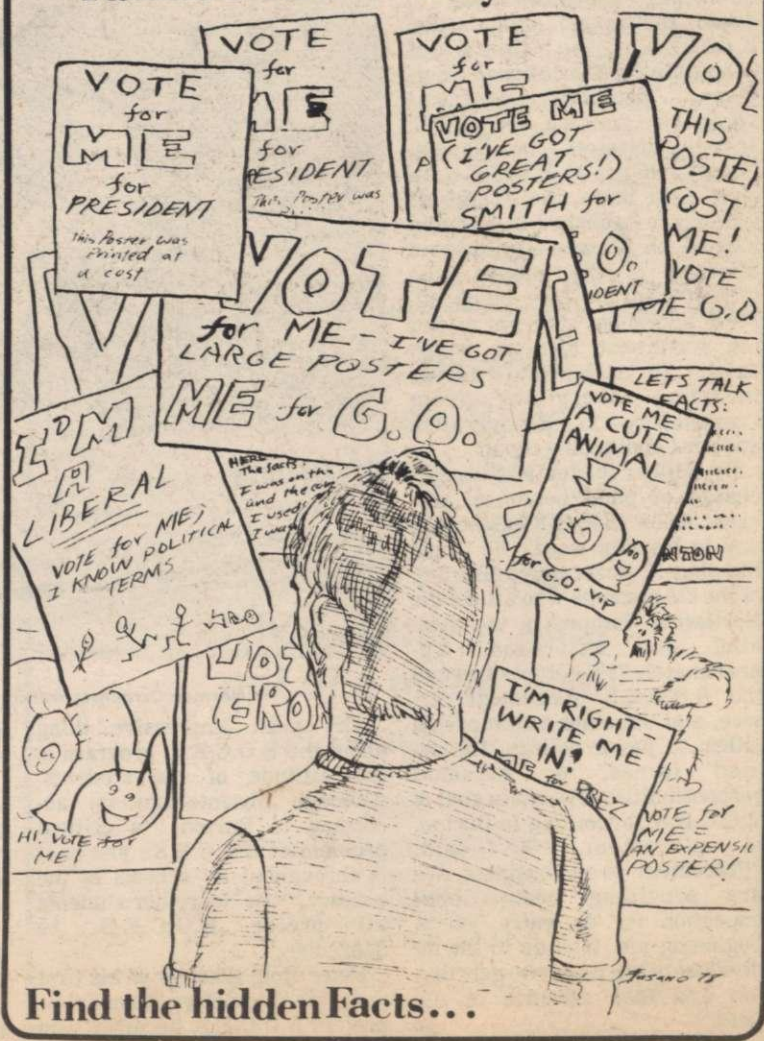 VOTE
for
ME
for
PRESIDENT
This Poster was
Printed at
a cost
VOTE
for
ME
for
PRESIDENT
This Poster was
VOTE
for
ME
VOTE ME
(I'VE GOT
GREAT
POSTERS!)
SMITH for
O.
IDENT
VOT
THIS
POSTER
COST
ME!
VOTE
ME G.O
VOTE
for ME - I'VE GOT
LARGE POSTERS
ME for G.O.
I'M
A
LIBERAL
VOTE for ME;
I KNOW POLITICAL
TERMS
HERE
The facts
I was on tha
and the com
I used
I was
VOTE ME
A CUTE
ANIMAL
for G.O. VIP
LETS TALK
FACTS:
NTON
VOT
ERO
HI! VOTE for
ME!
I'M RIGHT-
WRITE ME
IN!
ME for PREZ
VOTE for
ME =
AN EXPENSI
POSTER!
Find the hidden Facts...